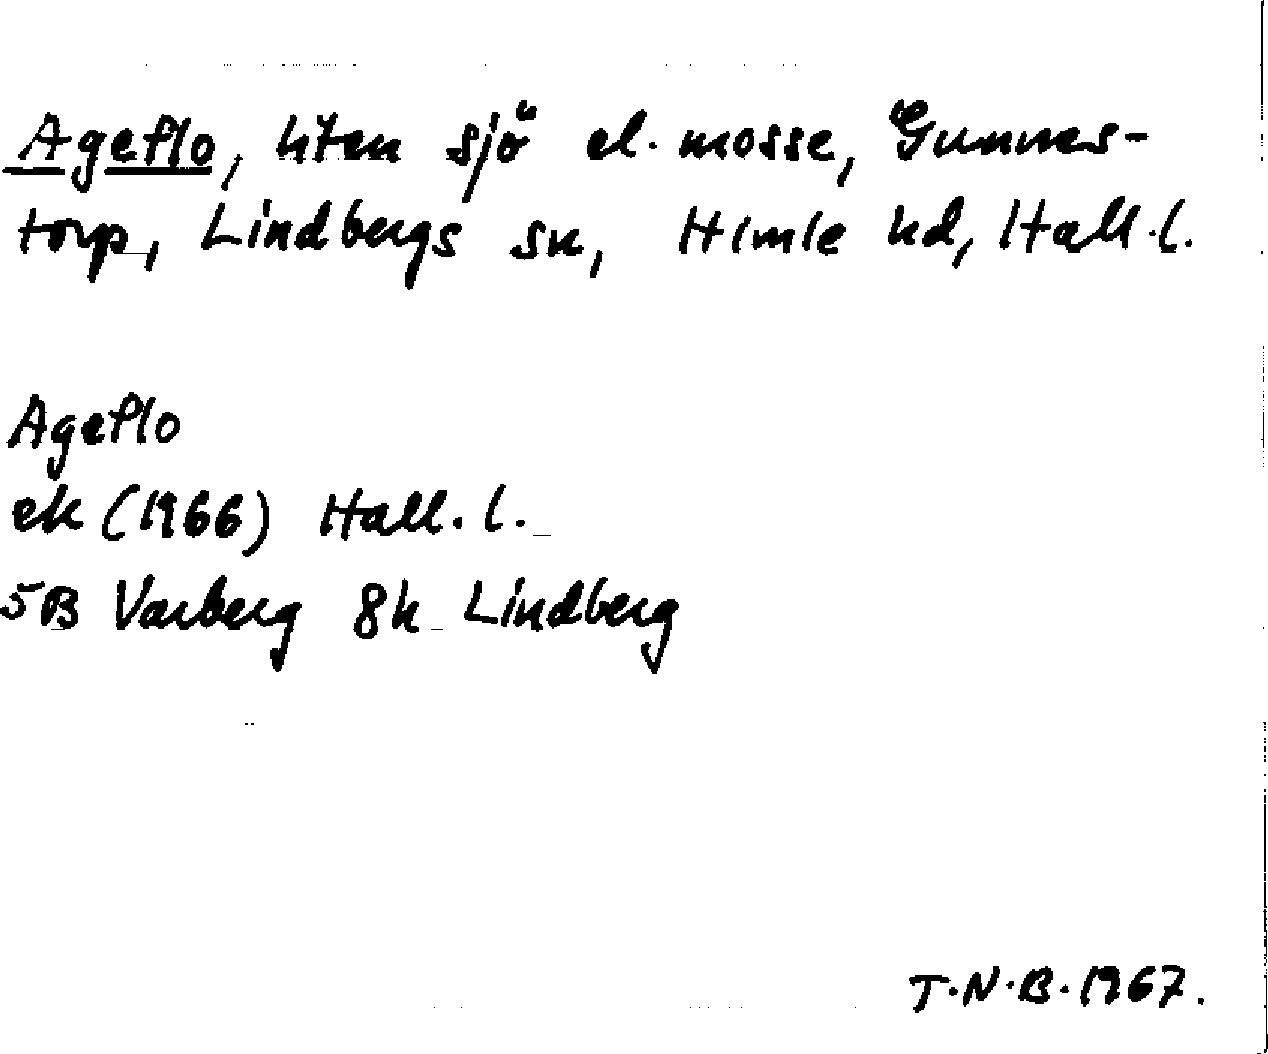 Ageflo, liten sjö el. mosse, Gunnes-
torp, Lindbergs sn, Himle hd, Hall.l.
Ageflo
ek (1966) Hall. l.
5B Varberg 8h Lindberg
T.N.B. 1967.